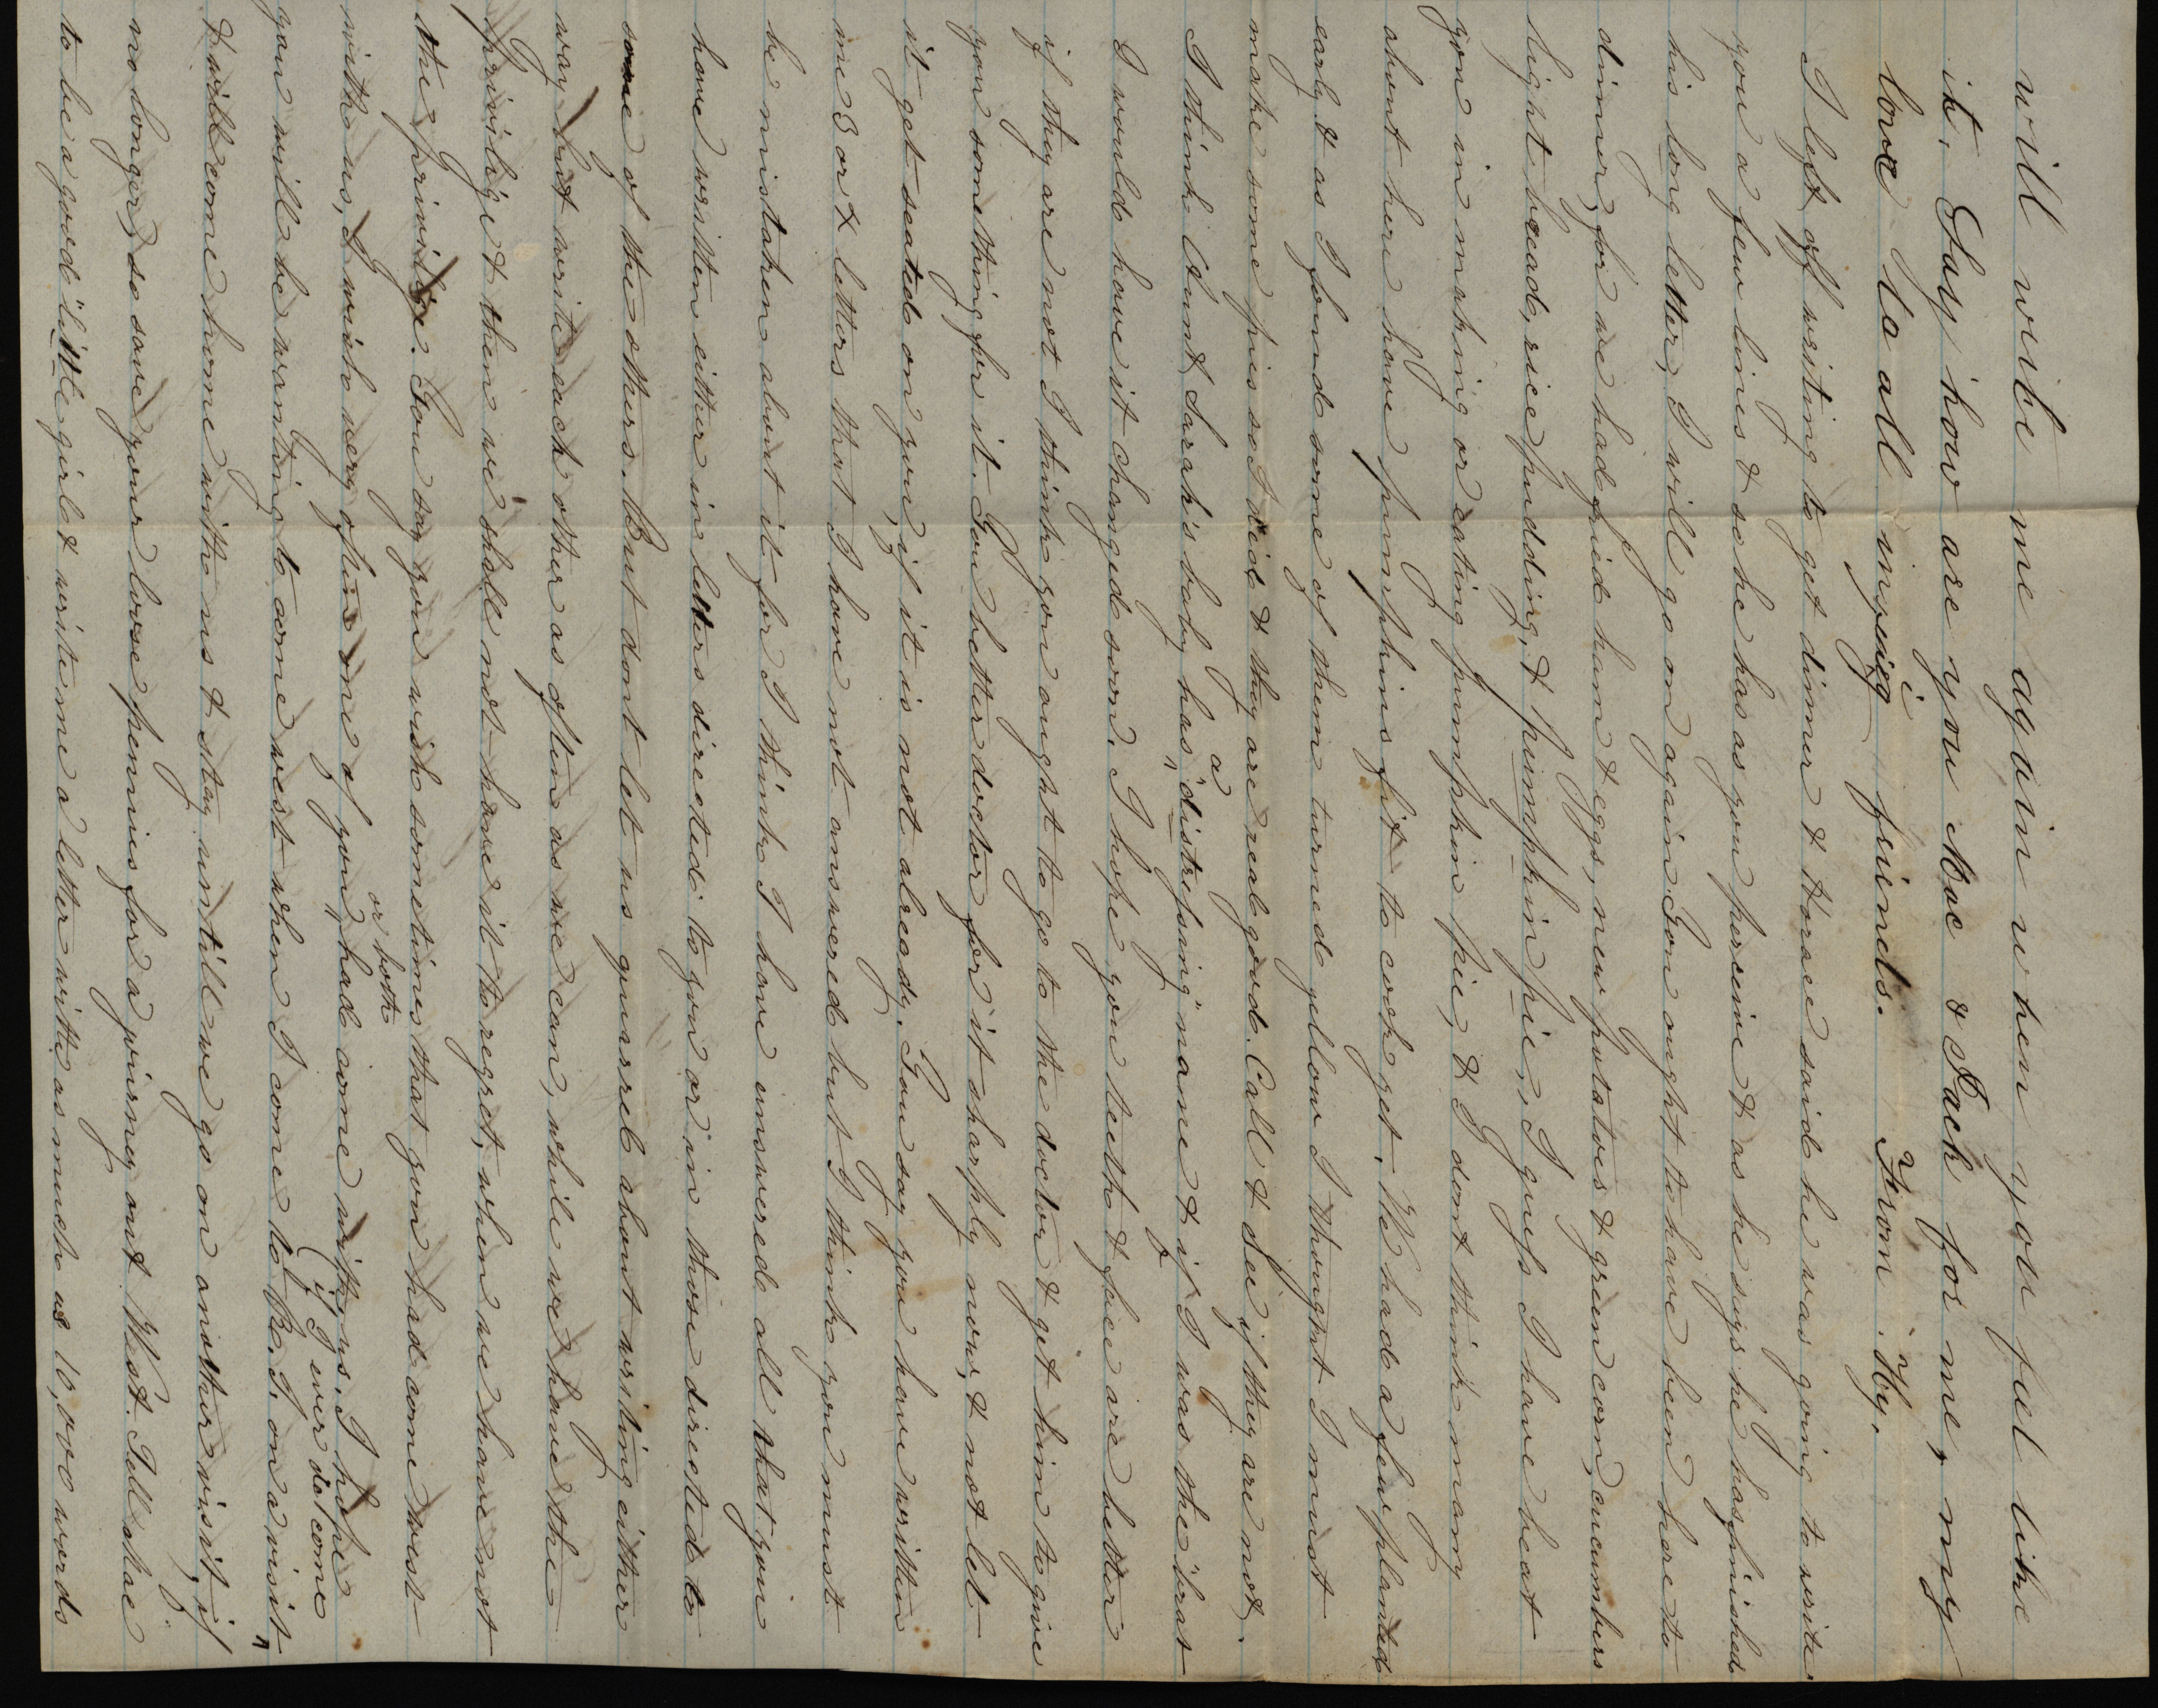 will wite me again when you feel like
it. Say how are you Mac & Jack for me, my
love to all inquiig friends. From. Hy.
I left off writing to get dinner & Horace said he was going to write
you a few lines & so he has as you perceive & as he says he has finished
his long letter, I will go on again. You ought to have been here to
dinner, for we had fried ham & eggs, new potatoes & green corn, cucumbers
light bread, rice pudding, & pumpkin pie, I guess I have beat
you in making or eating pumpkin pie, & I dont think many
about here have pumpkins fit to cook yet. We had a few planted
early & as I found some of them turned yellow I thought I must
make some pies so I did & they are real good. Call & see if they are not.
I think Aunt Sarah's baby has a "distressing" name & if I was the "brat"
I would have it changed soon. I hope you teeth & face are better
if they are not I think you ought to go to the doctor & get him to give
you something for it. You better doctor for it sharply now, & not let
it get seated on you, if it is not already. You say you have written
me 3 or 4 letters that I have not answered but I think you must
be mistaken about it for I think I have answered all that you
have written either in letters directed to you or in those directed to
some of the others. But dont let us quarrel about writing either
way, but write each other as often as we can, while we have the
privilige & then we shall not have it to regret, when we have not
the privilige. You say you wish sometimes that you had come west
with us, I wish very often one of you, or both had come with us. I hope
you will be wanting to come west when I come to R. I. on a visit (if I ever do come
& will come home with us & stay untill we go on another visit, if
no longer, so save your loose pennies for a journey out West. Tell
to be a good "little girl & write me a letter with as much as 10,000 words